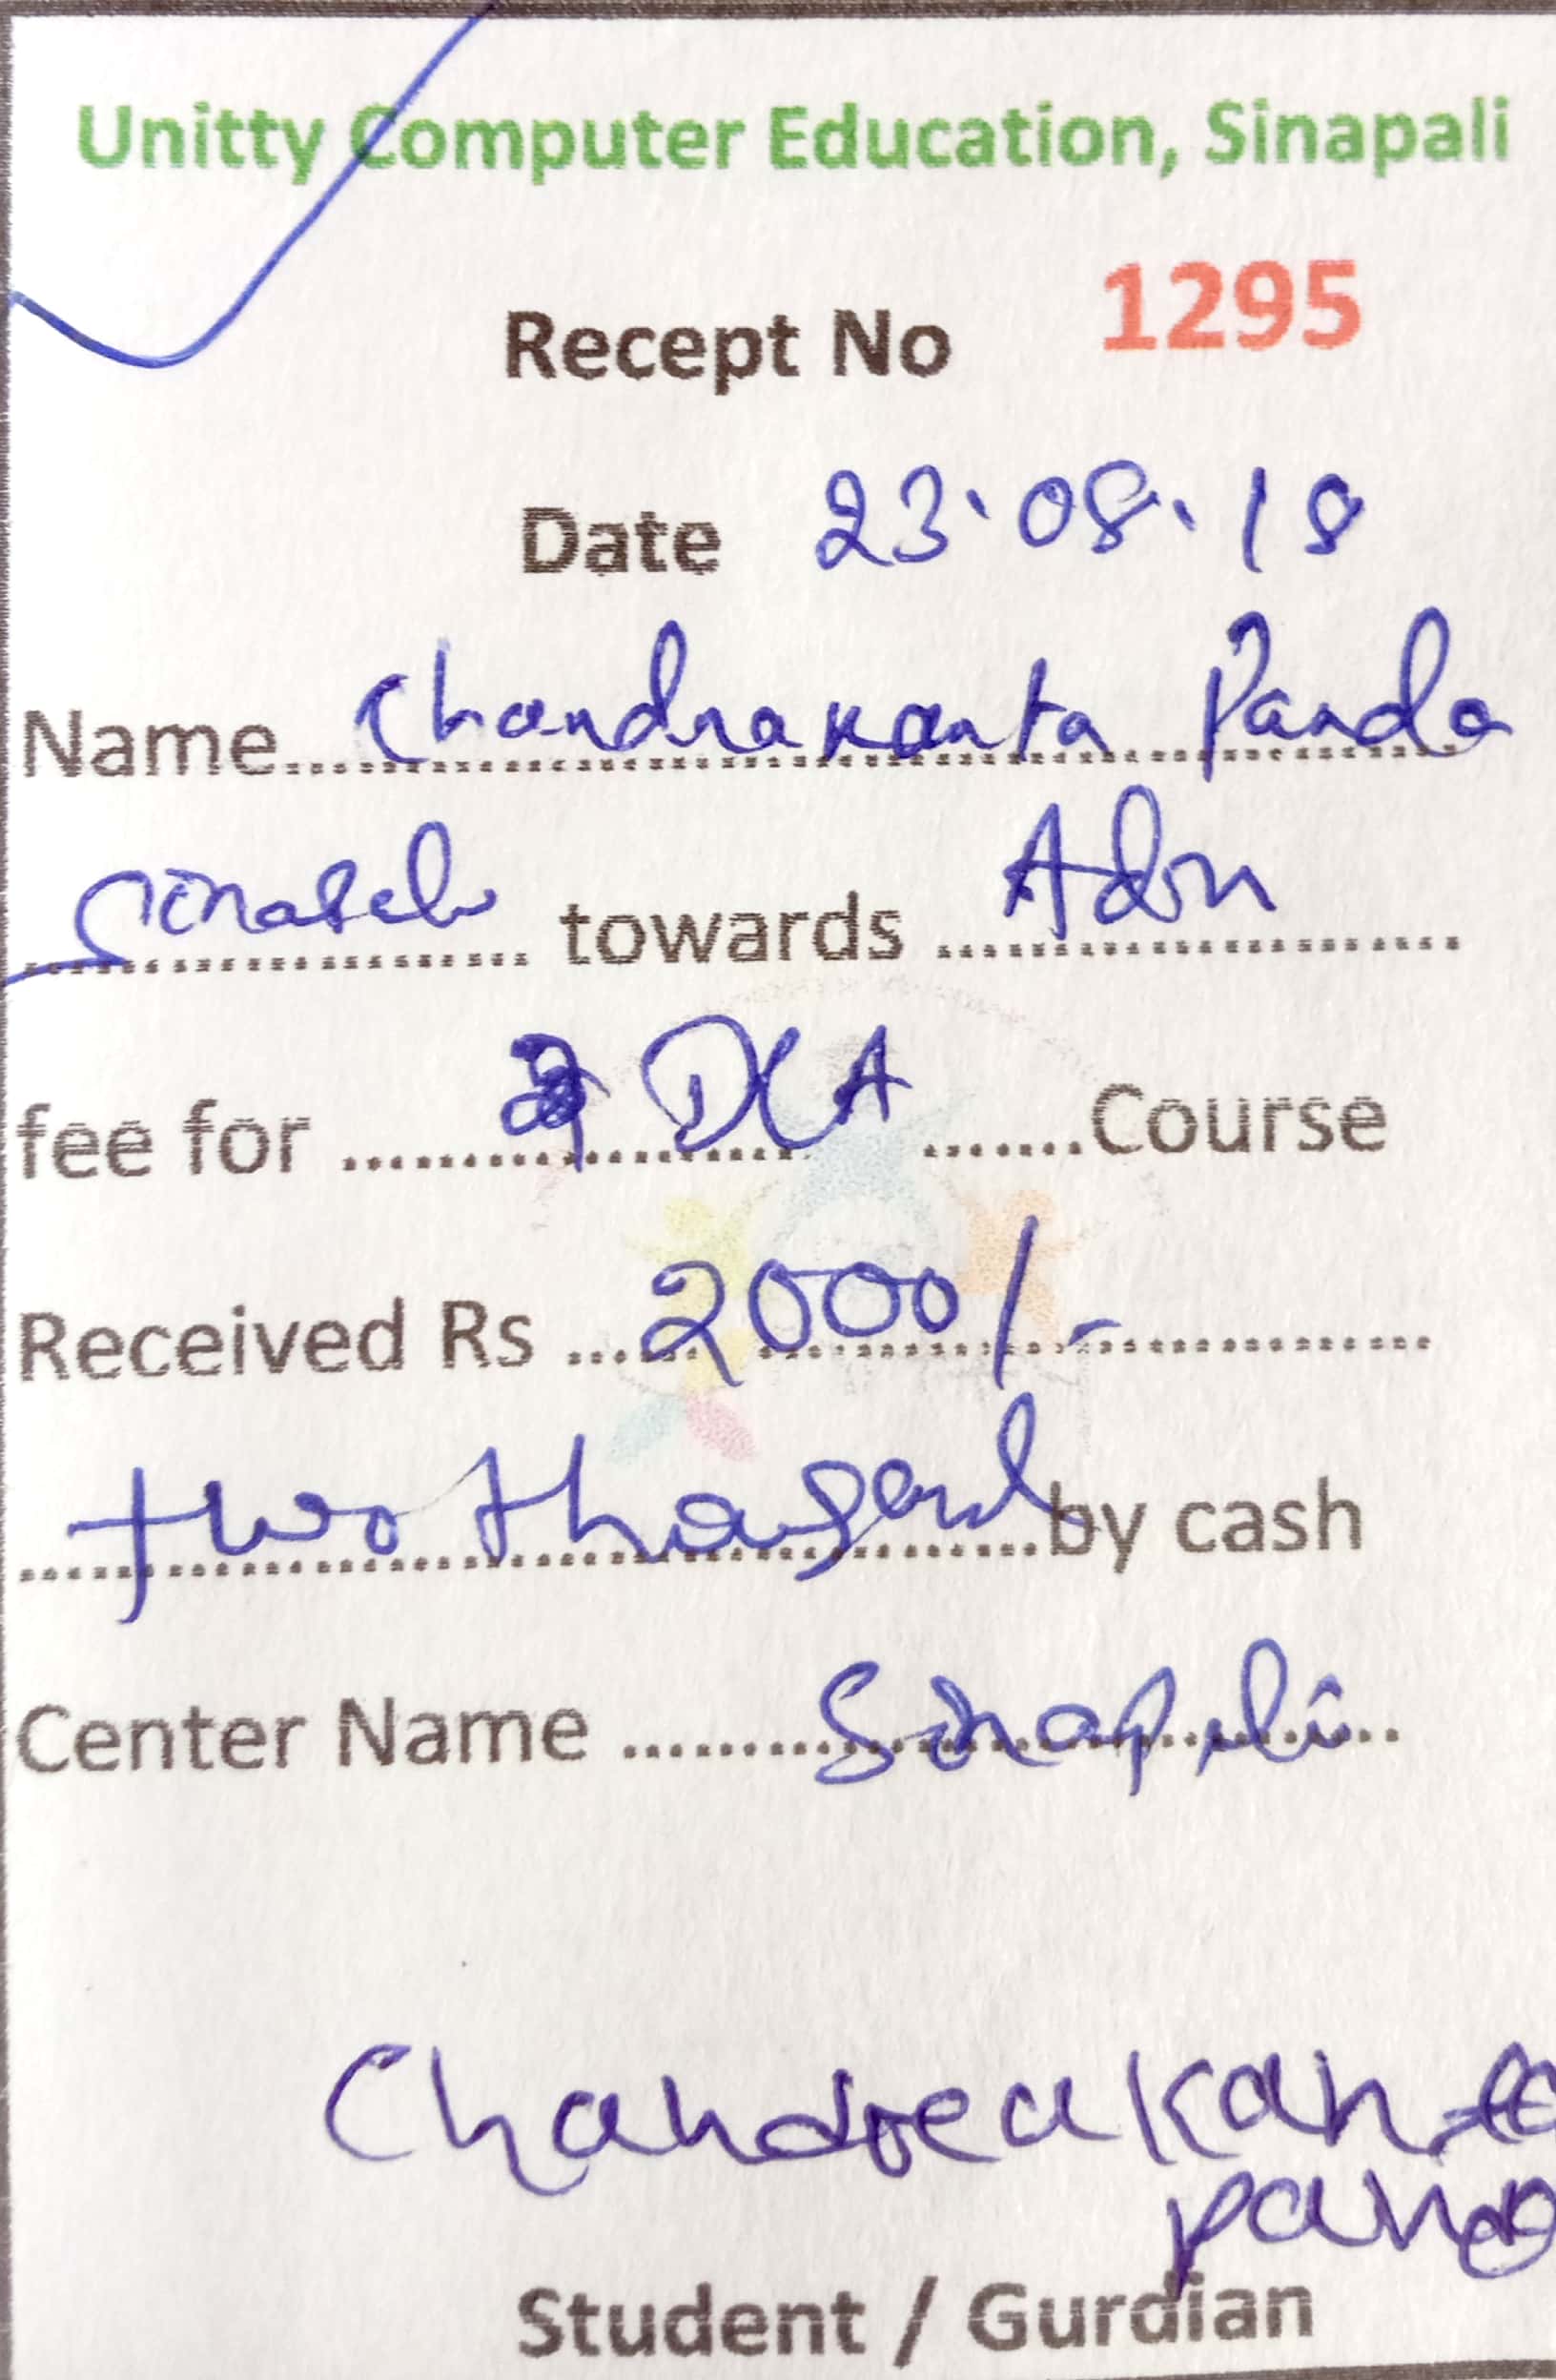 Unitty Computer Education, Sinapali
Recept No 1295
Date 23.08.18
Name Chandrakanta Panda
towards Adm
fee for DCA Course
Received Rs 2000/-
two thasand by cash
Center Name Sinapali
Chandreakanta
panda
Student / Gurdian